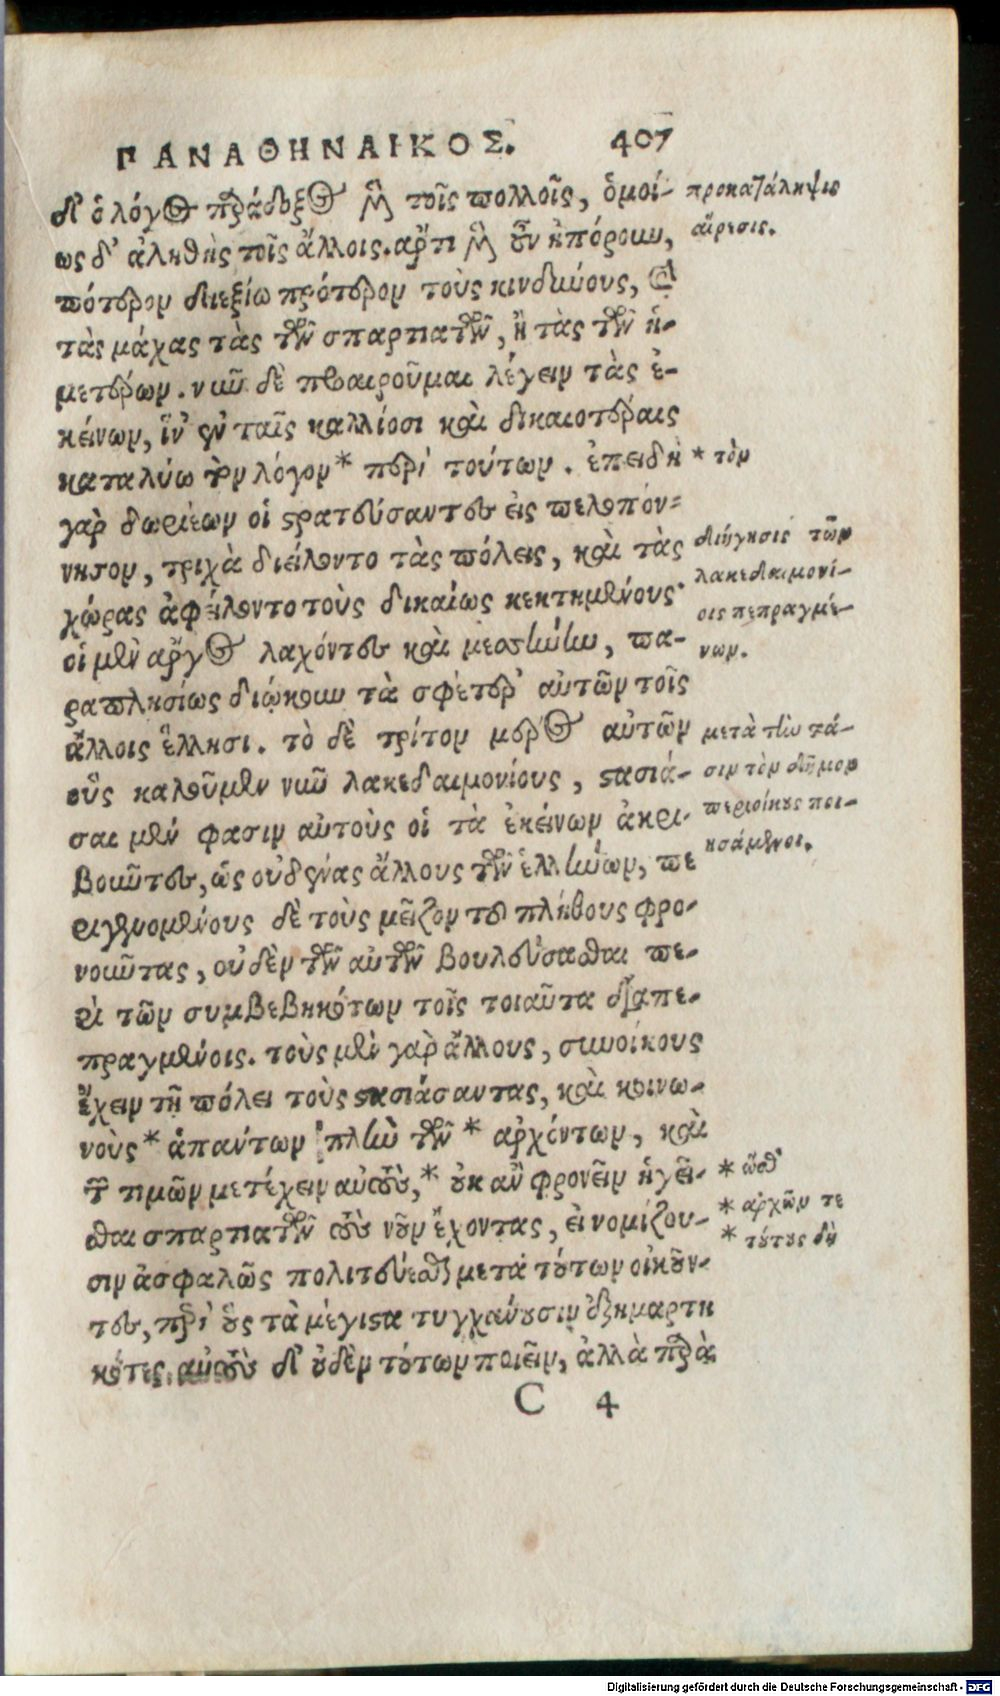 ΠΑΝΑΘΗΝΑΙΚΟΣ. 407
δ' ὁ λόγος παράδοξος μὲν τοῖς πολλοῖς, ὁμοί-
ως δ' ἀληθὴς τοῖς ἄλλοις. ἄρτι μὲν οὖν ἠπόρουν,
πότερον διεξίω πρότερον τοὺς κινδύνους, καὶ
τὰς μάχας τὰς τῶν σπαρτιατῶν, ἢ τὰς τῶν ἡ-
μετέρων. νῦν δὲ προαιροῦμαι λέγειν τὰς ἐ-
κείνων, ἵν' ἐν ταῖς καλλίοσι καὶ δικαιοτέραις
καταλύω τὸν λόγον* περὶ τούτων. ἐπειδὴ
γὰρ δωριέων οἱ στρατεύσαντες εἰς πελοπόν-
νησον, τριχὰ διείλοντο τὰς πόλεις, καὶ τὰς
χώρας ἀφείλοντο τοὺς δικαίως κεκτημένους·
οἱ μὲν ἄργος λαχόντες καὶ μεσσήνην, πα-
ραπλησίως διῴκουν τὰ σφέτερ' αὐτῶν τοῖς
ἄλλοις ἕλλησι. τὸ δὲ τρίτον μέρος αὐτῶν
οὓς καλοῦμεν νῦν λακεδαιμονίους, στασιά-
σαι μέν φασιν αὐτοὺς οἱ τὰ ἐκείνων ἀκρι-
βοῦντες, ὡς οὐδένας ἄλλους τῶν ἑλλήνων, πε
ριγενομένους δὲ τοὺς μεῖζον τοῦ πλήθους φρο-
νοῦντας, οὐδὲν τῶν αὐτῶν βουλεύσασθαι πε-
ρὶ τῶν συμβεβηκότων τοῖς τοιαῦτα διαπε-
πραγμένοις. τοὺς μὲν γὰρ ἄλλους, συνοίκους
ἔχειν τῇ πόλει τοὺς στασιάσαντας, καὶ κοινω-
νοὺς* ἁπάντων πλὴν τῶν* ἀρχόντων, καὶ
τῶν τιμῶν μετέχειν αὐτοὺς,* οὐκ ἂν φρονεῖν ἡγεῖ-
σθαι σπαρτιατῶν τοὺς νοῦν ἔχοντας, εἰ νομίζου-
σιν ἀσφαλῶς πολιτεύεσθαι μετὰ τούτων οἰκοῦν-
τες, περὶ οὓς τὰ μέγιστα τυγχάνουσιν ἐξημαρτη
κότες, αὐτοὺς δ' οὐδὲν τούτων ποιεῖν, ἀλλὰ παρὰ
C 4
προκατάληψις
αἵρεσις.
* τὸν
διήγησις τῶν
λακεδαιμονί-
οις πεπραγμέ-
νων.
μετὰ τὴν στά-
σιν τὸν δῆμον
περιοίκους ποι-
ησάμενοι.
* ὥσθ'
* ἀρχῶν τε
* τούτους δὴ
Digitalisierung gefördert durch die Deutsche Forschungsgemeinschaft - DFG